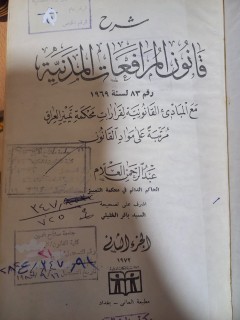 شرح
قانون المرافعات المدنية
رقم ٨٣ لسنة ١٩٦٩
مع المبادئ القانونية لقرارات محكمة تمييز العراق
مرتبة على مواد القانون
عبد الرحمن العلام
الحاكم القانوني في محكمة التمييز
اشرف على تصحيحه
السيد باقر الخليلي
٣٤٧
٧٢٥
الجزء الثاني
١٩٧٢
مطبعة العاني - بغداد